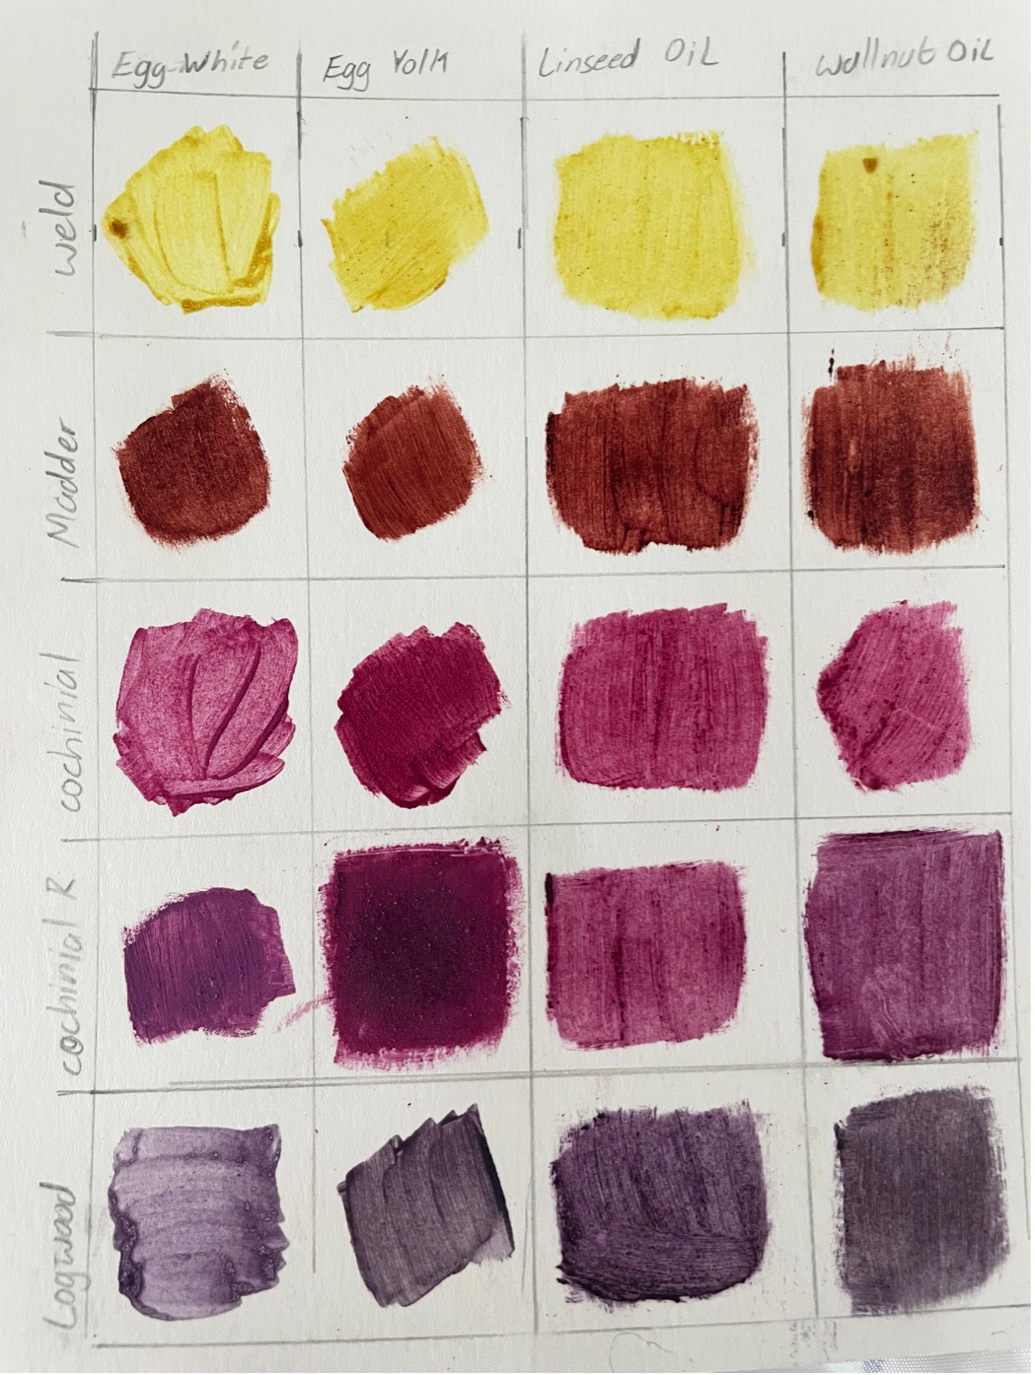 Egg-White
Egg Yolk
Linseed Oil
Wallnut Oil
Weld
Madder
cochinial
cochinial R
Logwood